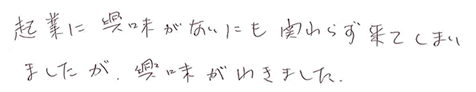 起業に興味がないにも関わらず来てしまい
ましたが、興味がわきました。